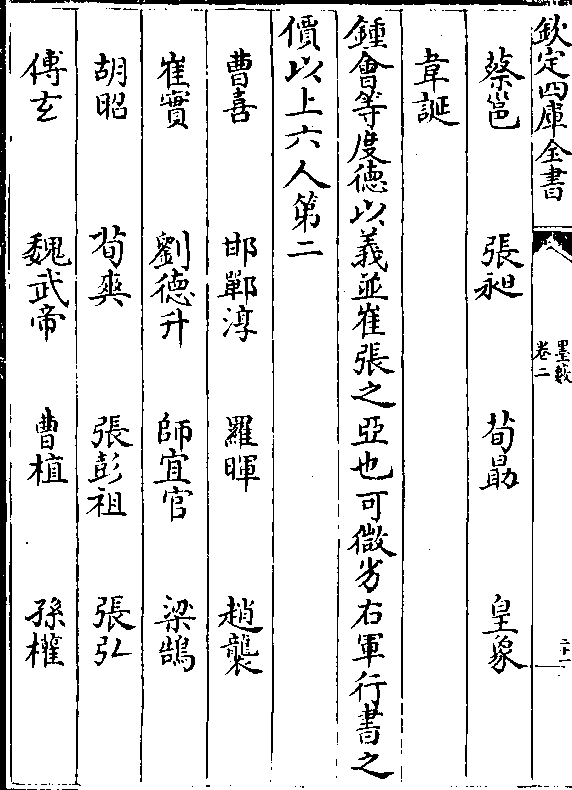 欽定四庫全書
墨藪
卷二
二十一
蔡邕　張昶　荀勗　皇象
韋誕
鍾會等度德以義並崔張之亞也可微劣右軍行書之
價以上六人第二
曹喜　邯鄲淳　羅暉　趙襲
崔寔　劉德升　師宜官　梁鵠
胡昭　荀爽　張彭祖　張弘
傅玄　魏武帝　曹植　孫權